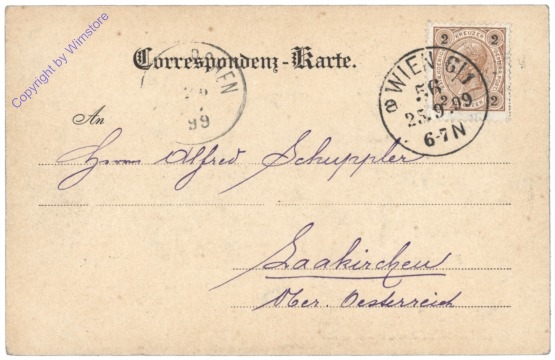 Copyright by Wimstore
Correspondenz-Karte.
2 KREUZER 2
2 2
WIEN 6/1
56
25.9.99
6-7N
99
An
Herrn Alfred Schuppler
Laakirchen
Ober. Oesterreich